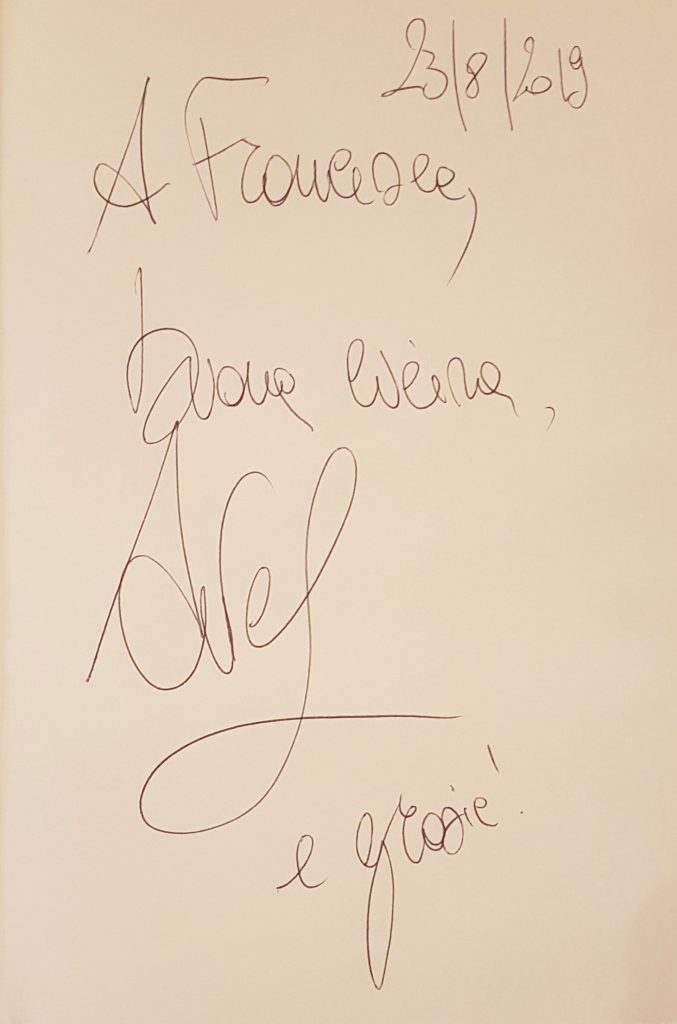 23/8/2019
A Francesca,
buona cucina,
e grazie!